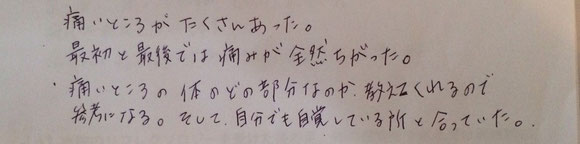 痛いところがたくさんあった。
最初と最後では痛みが全然ちがった。
痛いところの体のどの部分なのか、教えてくれるので
参考になる。そして、自分でも自覚している所と合っていた。